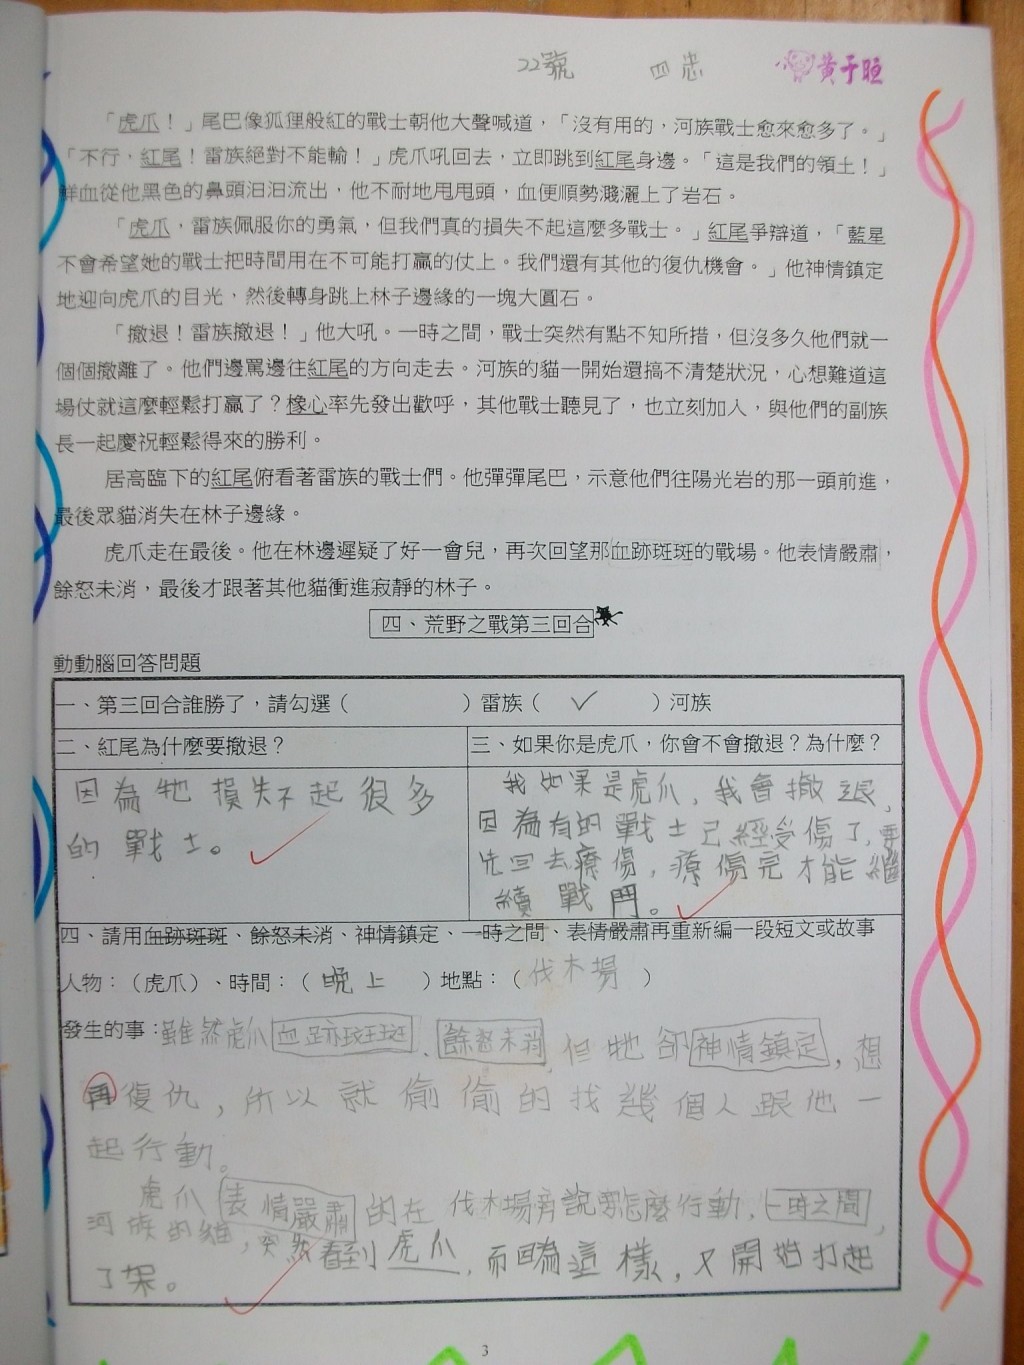 22號 四忠 黃于晅
「虎爪！」尾巴像狐狸般紅的戰士朝他大聲喊道，「沒有用的，河族戰士愈來愈多了。」
「不行，紅尾！雷族絕對不能輸！」虎爪吼回去，立即跳到紅尾身邊。「這是我們的領土！」
鮮血從他黑色的鼻頭汩汩流出，他不耐地甩甩頭，血便順勢濺灑上了岩石。
「虎爪，雷族佩服你的勇氣，但我們真的損失不起這麼多戰士。」紅尾爭辯道，「藍星
不會希望她的戰士把時間用在不可能打贏的仗上。我們還有其他的復仇機會。」他神情鎮定
地迎向虎爪的目光，然後轉身跳上林子邊緣的一塊大圓石。
「撤退！雷族撤退！」他大吼。一時之間，戰士突然有點不知所措，但沒多久他們就一
個個撤離了。他們邊罵邊往紅尾的方向走去。河族的貓一開始還搞不清楚狀況，心想難道這
場仗就這麼輕鬆打贏了？橡心率先發出歡呼，其他戰士聽見了，也立刻加入，與他們的副族
長一起慶祝輕鬆得來的勝利。
居高臨下的紅尾俯看著雷族的戰士們。他彈彈尾巴，示意他們往陽光岩的那一頭前進，
最後眾貓消失在林子邊緣。
虎爪走在最後。他在林邊遲疑了好一會兒，再次回望那血跡斑斑的戰場。他表情嚴肅，
餘怒未消，最後才跟著其他貓衝進寂靜的林子。
四、荒野之戰第三回合
動動腦回答問題
一、第三回合誰勝了，請勾選（ ）雷族（ ✓ ）河族
二、紅尾為什麼要撤退？
因為牠損失不起很多
的戰士。
三、如果你是虎爪，你會不會撤退？為什麼？
我如果是虎爪，我會撤退，
因為有的戰士已經受傷了，要
先回去療傷，療傷完才能繼
續戰鬥。
四、請用血跡斑斑、餘怒未消、神情鎮定、一時之間、表情嚴肅再重新編一段短文或故事
人物：（虎爪）、時間：（ 晚上 ）地點：（ 伐木場 ）
發生的事：雖然虎爪血跡斑斑、餘怒未消，但牠卻神情鎮定，想
再復仇，所以就偷偷的找幾個人跟他一
起行動。
虎爪表情嚴肅的在伐木場旁說要怎麼行動，一時之間，
河族的貓，突然看到虎爪，而因為這樣，又開始打起
了架。
3